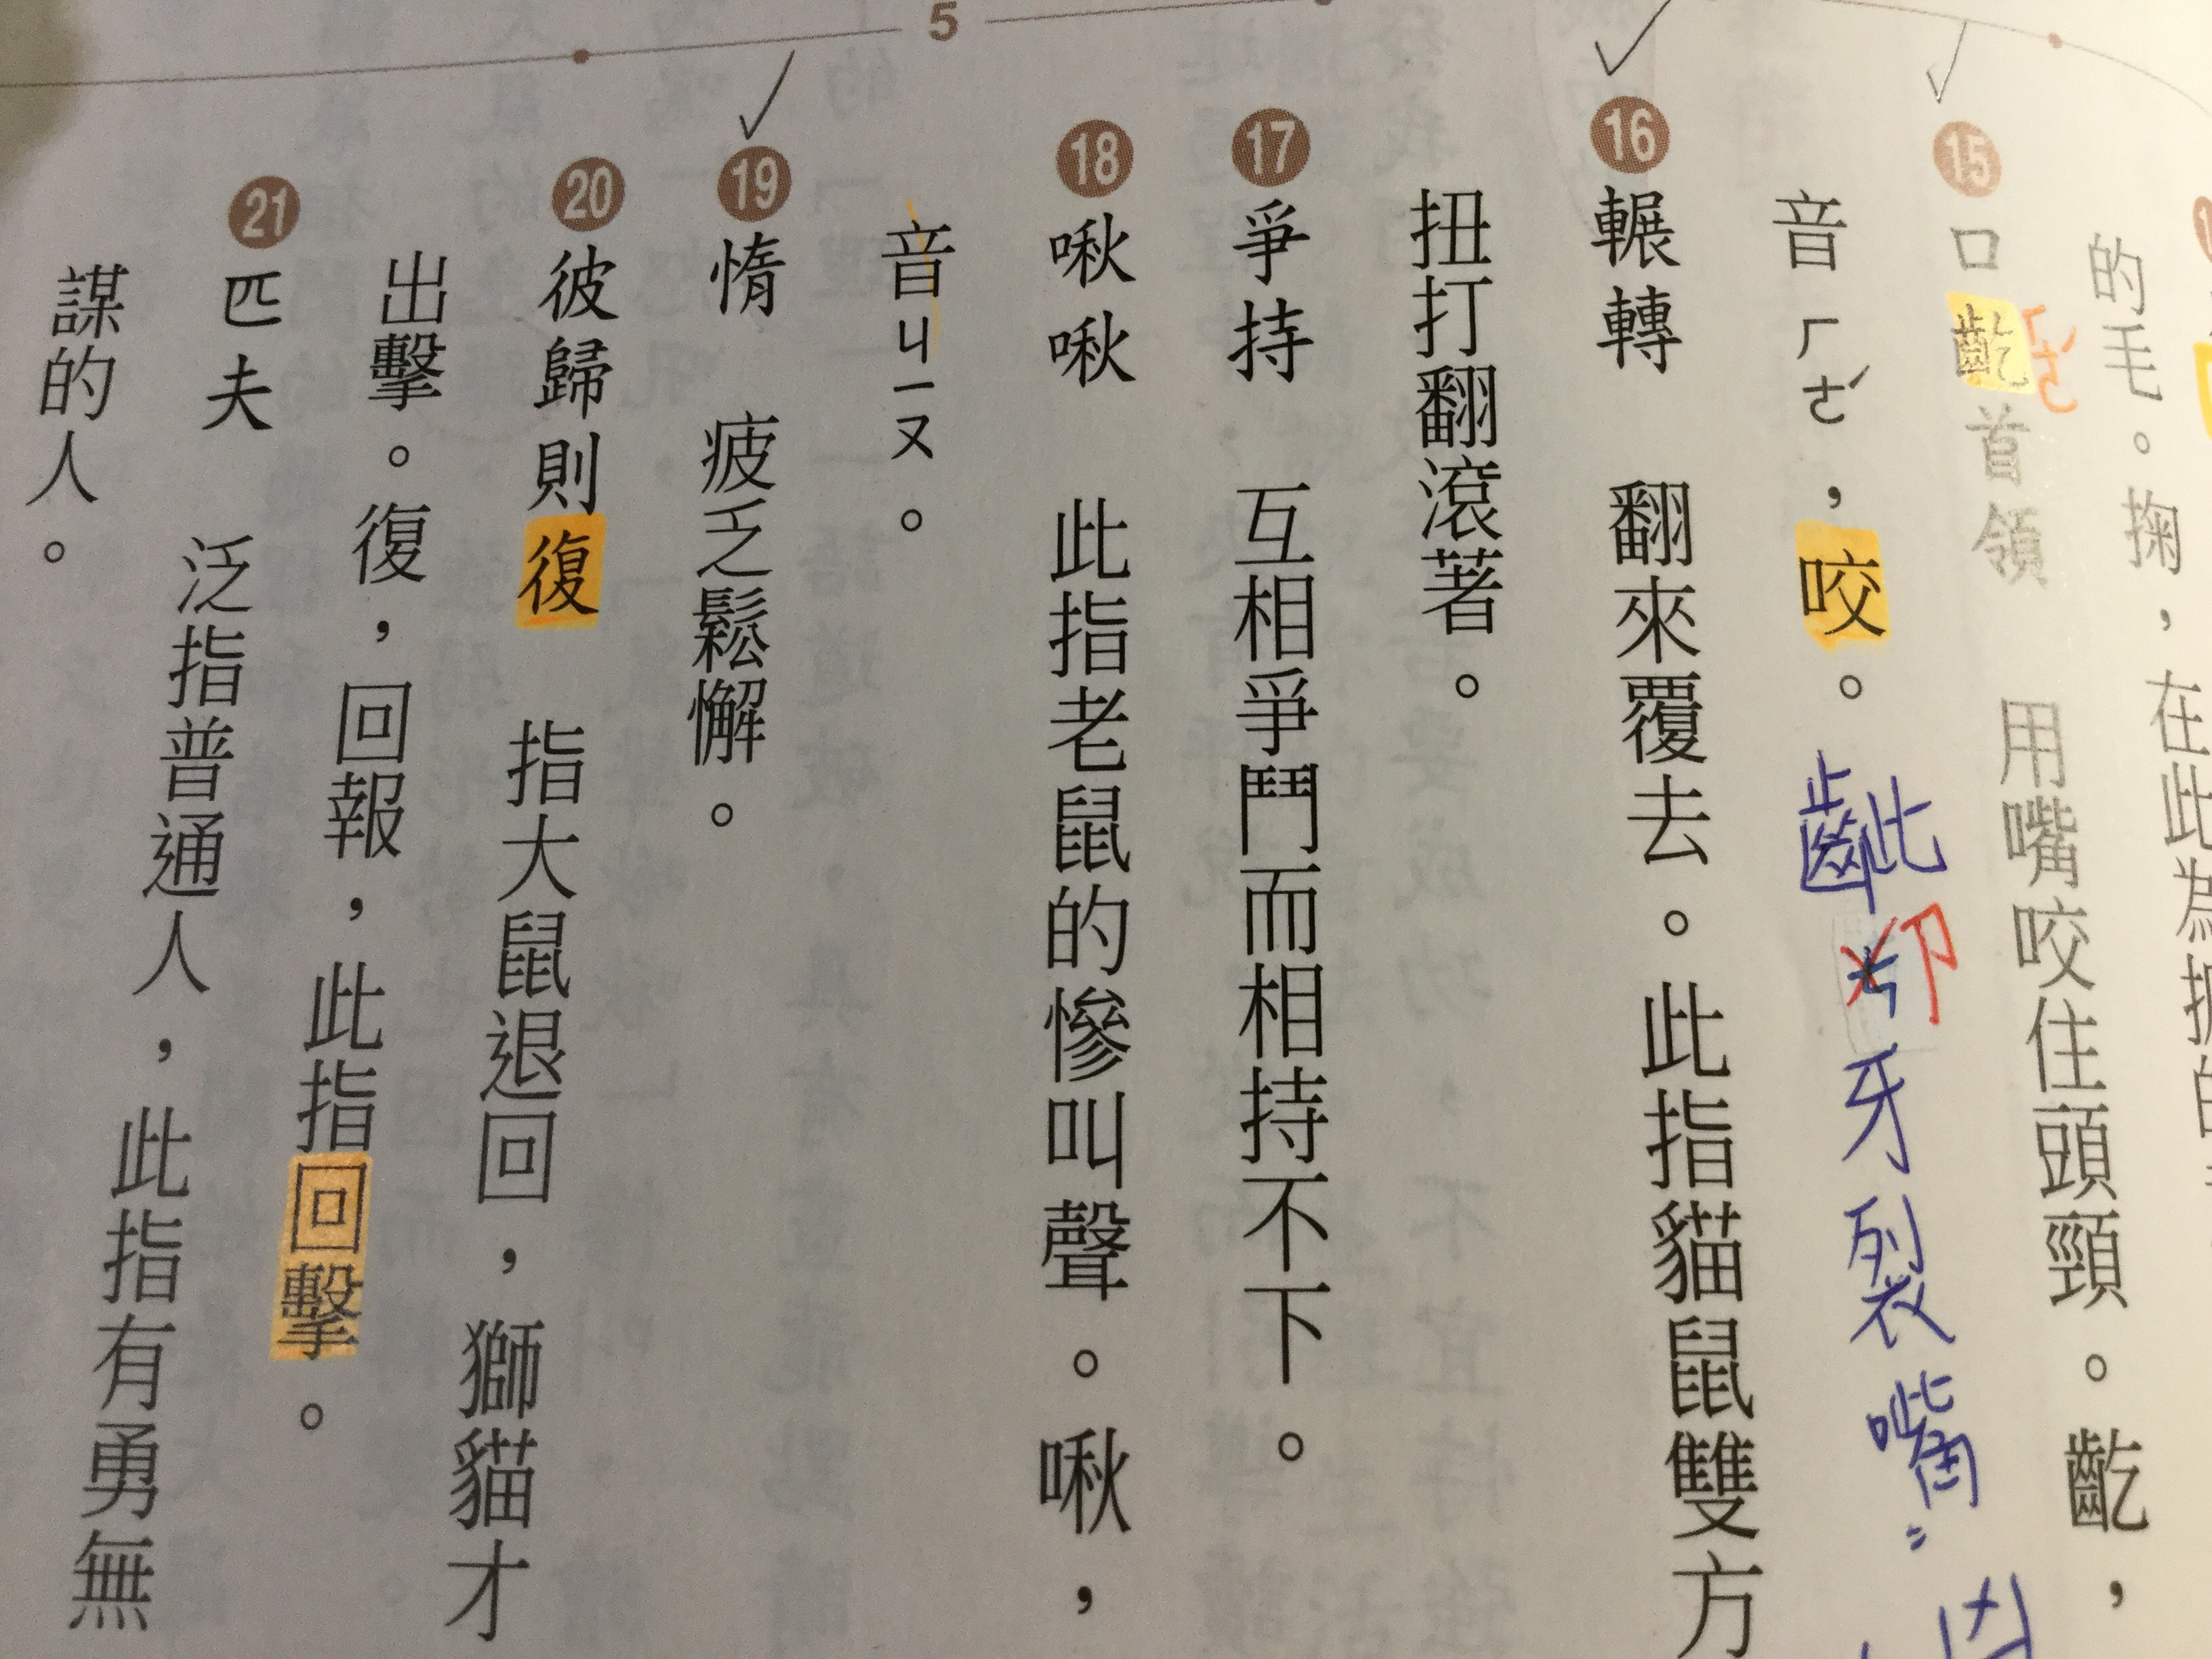 5
的毛。掬,在此為
⑮口齕首領 用嘴咬住頭頸。齕,
音ㄏㄜˊ,咬。齜牙裂嘴
⑯輾轉 翻來覆去。此指貓鼠雙方
扭打翻滾著。
⑰爭持 互相爭鬥而相持不下。
⑱啾啾 此指老鼠的慘叫聲。啾,
音ㄐㄧㄡ。
⑲惰 疲乏鬆懈。
⑳彼歸則復 指大鼠退回,獅貓才
出擊。復,回報,此指回擊。
㉑匹夫 泛指普通人,此指有勇無
謀的人。